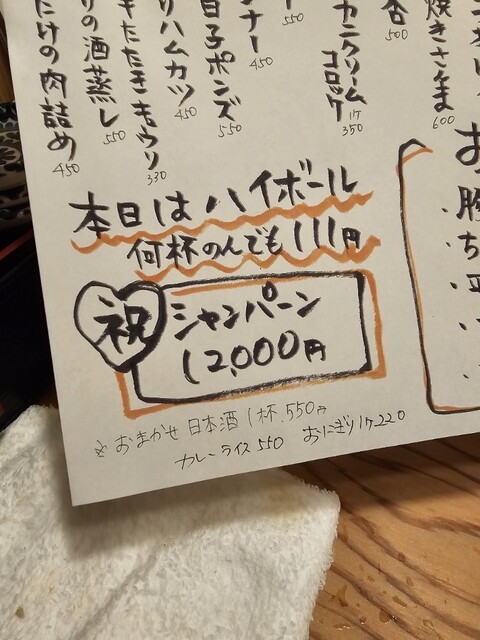 焼きさんま
600
500
カニクリーム
コロッケ
1ケ
350
550
ナー
450
白子ポンズ
550
ハムカツ
450
たたきキュウリ
330
の酒蒸し
550
たけの肉詰め
450
本日はハイボール
何杯のんでも111円
祝
シャンパーン
12,000円
※おまかせ 日本酒1杯.550円
カレーライス550 おにぎり1ケ220
お
・ち
・平